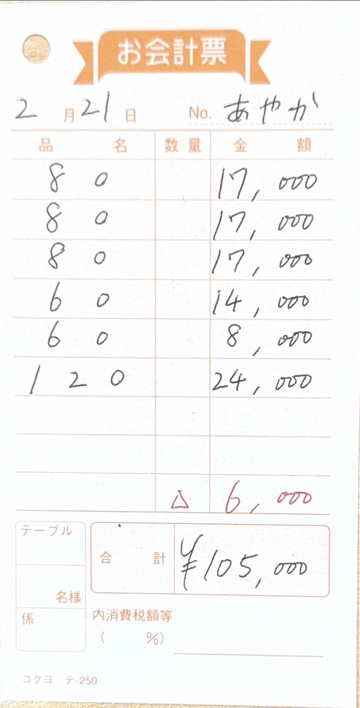 お会計票
2月21日 No. あやか
品名 数量 金額
80 17,000
80 17,000
80 17,000
60 14,000
60 8,000
120 24,000
△ 6,000
テーブル
名様
係
合計 ¥105,000
内消費税額等
( %)
コクヨ テ-250